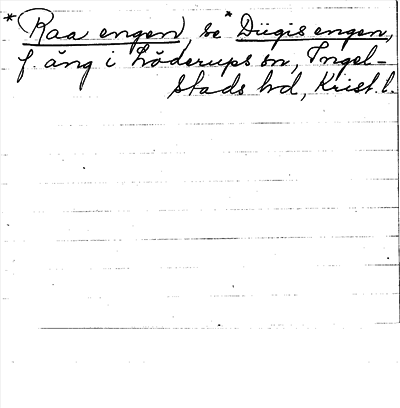 *Raa engen, se *Diigis engen,
f. äng i Löderups sn, Ingel-
stads hd, Krist. l.